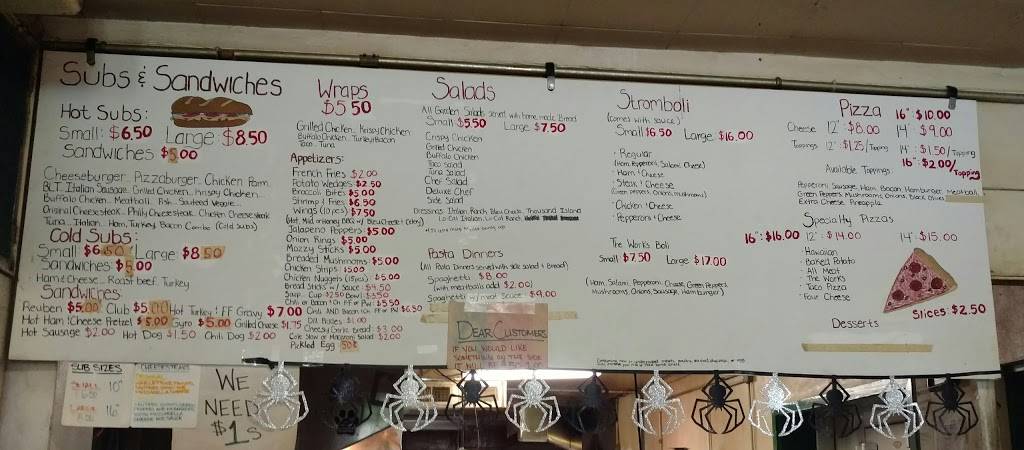 Subs & Sandwiches
Hot Subs:
Small: $6.50 Large: $8.50
Sandwiches $5.00
Cheeseburger, Pizzaburger, Chicken Parm,
BLT, Italian Sausage, Grilled Chicken, Krispy Chicken,
Buffalo Chicken, Meatball, Fish, Sauteed Veggie,
Original Cheesesteak, Philly Cheesesteak, Chicken Cheesesteak
Tuna, Italian, Ham, Turkey, Bacon Combo (Cold Subs)
Cold Subs:
Small $6.50 Large $8.50
Sandwiches $5.00
Ham & Cheese, Roast beef, Turkey
Sandwiches
Reuben $5.00 Club $5.00 Hot Turkey & FF Gravy $7.00
Hot Ham & Cheese Pretzel $5.00 Gyro $5.00 Grilled Cheese $1.75
Hot Sausage $2.00 Hot Dog $1.50 Chili Dog $2.00
Wraps
$5.50
Grilled Chicken, Krispy Chicken
Buffalo Chicken, Turkey Bacon
Taco, Tuna
Appetizers:
French Fries $2.00
Potato Wedges $2.50
Broccoli Bites $5.00
Shrimp & Fries $6.50
Wings (10 pcs) $7.50
(Hot, Mild, or Honey BBQ w/ Bleu Cheese & Celery)
Jalapeno Poppers $5.00
Onion Rings $5.00
Mozzy Sticks $5.00
Breaded Mushrooms $5.00
Chicken Strips $5.00
Chicken Nuggets $5.00
Bread Sticks w/ Sauce $4.50
Soup - Cup $2.50 Bowl $3.50
Chili or Bacon & Ch. FF or PW $5.50
Chili AND Bacon & Ch. FF or PW $6.50
Dill Pickles $1.00
Cheesy Garlic Bread $3.00
Cole Slaw or Macaroni Salad $2.00
Pickled Egg 50¢
Salads
All Garden Salads served with home made Bread
Small $5.50 Large $7.50
Crispy Chicken
Grilled Chicken
Buffalo Chicken
Taco Salad
Tuna Salad
Chef Salad
Deluxe Chef
Side Salad
Dressings: Italian, Ranch, Bleu Cheese, Thousand Island
Lo Cal Italian, Lo Cal Ranch
Pasta Dinners
(All Pasta Dinners served with side salad & Bread)
Spaghetti $8.00
(with meatballs add $2.00)
Spaghetti w/ meat sauce $9.00
DEAR CUSTOMERS
IF YOU WOULD LIKE
SOMETHING ON THE SIDE
Stromboli
(comes with sauce)
Small $6.50 Large $16.00
· Regular
(Ham, Pepperoni, Salami, Cheese)
· Ham & Cheese
· Steak & Cheese
(Green peppers, Onions, mushrooms)
· Chicken & Cheese
· Pepperoni & Cheese
The Works Boli
Small $7.50 Large $17.00
(Ham, Salami, Pepperoni, Cheese, Green Peppers,
Mushrooms, Onions, Sausage, Hamburger)
Pizza 16": $10.00
Cheese 12": $8.00 14": $9.00
Toppings 12": $1.25/Topping 14": $1.50/Topping
16": $2.00/Topping
Available Toppings
Pepperoni, Sausage, Ham, Bacon, Hamburger, Meatball,
Green Peppers, Mushrooms, Onions, Black Olives,
Extra Cheese, Pineapple
Specialty Pizzas
16": $16.00 12": $14.00 14": $15.00
· Hawaiian
· Baked Potato
· All Meat
· The Works
· Taco Pizza
· Four Cheese
Slices: $2.50
Desserts
SUB SIZES
SMALL 10"
LARGE 16"
CHEESESTEAKS
WE
NEED
$1s